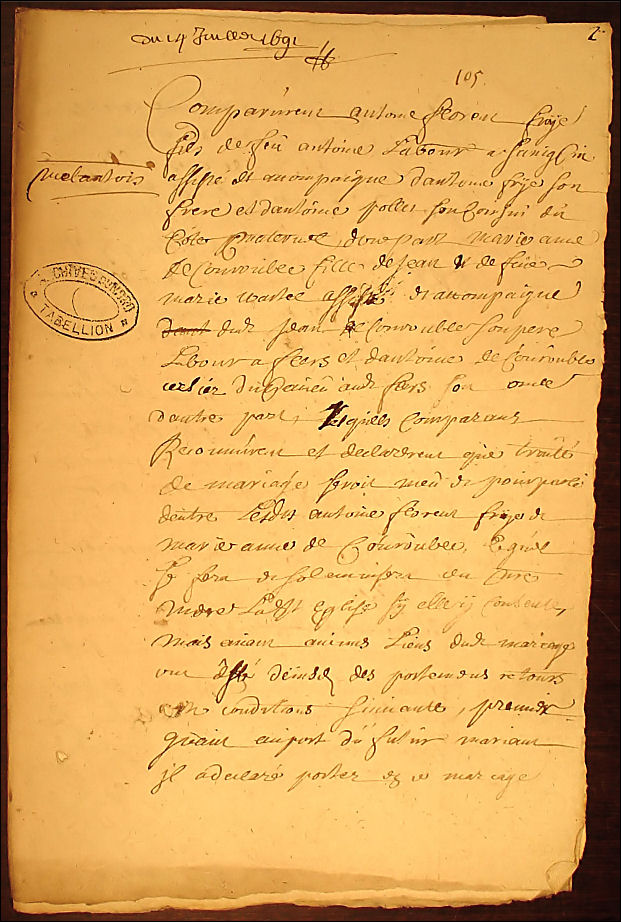 du 14 Juillet 1691
2
105
Comparurent antoine florent frije
fils de feu antoine Labour a
melantois
assisté et accompaigné dantoine frije son
frere et dantoine pollet son Cousin du
Costé paternel, dune part Marie anne
de Couroublee fille de Jean et de feue
marie wattee assistée et accompaigné
dudt Jean de Couroublee son pere
ARCHIVES DU NORD
TABELLION
Labour a flers et dantoine de Couroublee
audt flers son oncle
dautre part, Lesquels Comparans
Reconnurent et declarerent que traitté
de mariage seroit meu et pourparlé
dentre Lesdts antoine florent frije et
marie anne de Couroublee, Lequel
se fera et solemnisera en nre
mere La Ste eglise sy elle y Consente,
mais avant aucuns Liens dudt mariage
ont esté devisé des portemens retours
et conditions suivante, premier
quant au port du futur mariant
jl a declaré porter en ce mariage